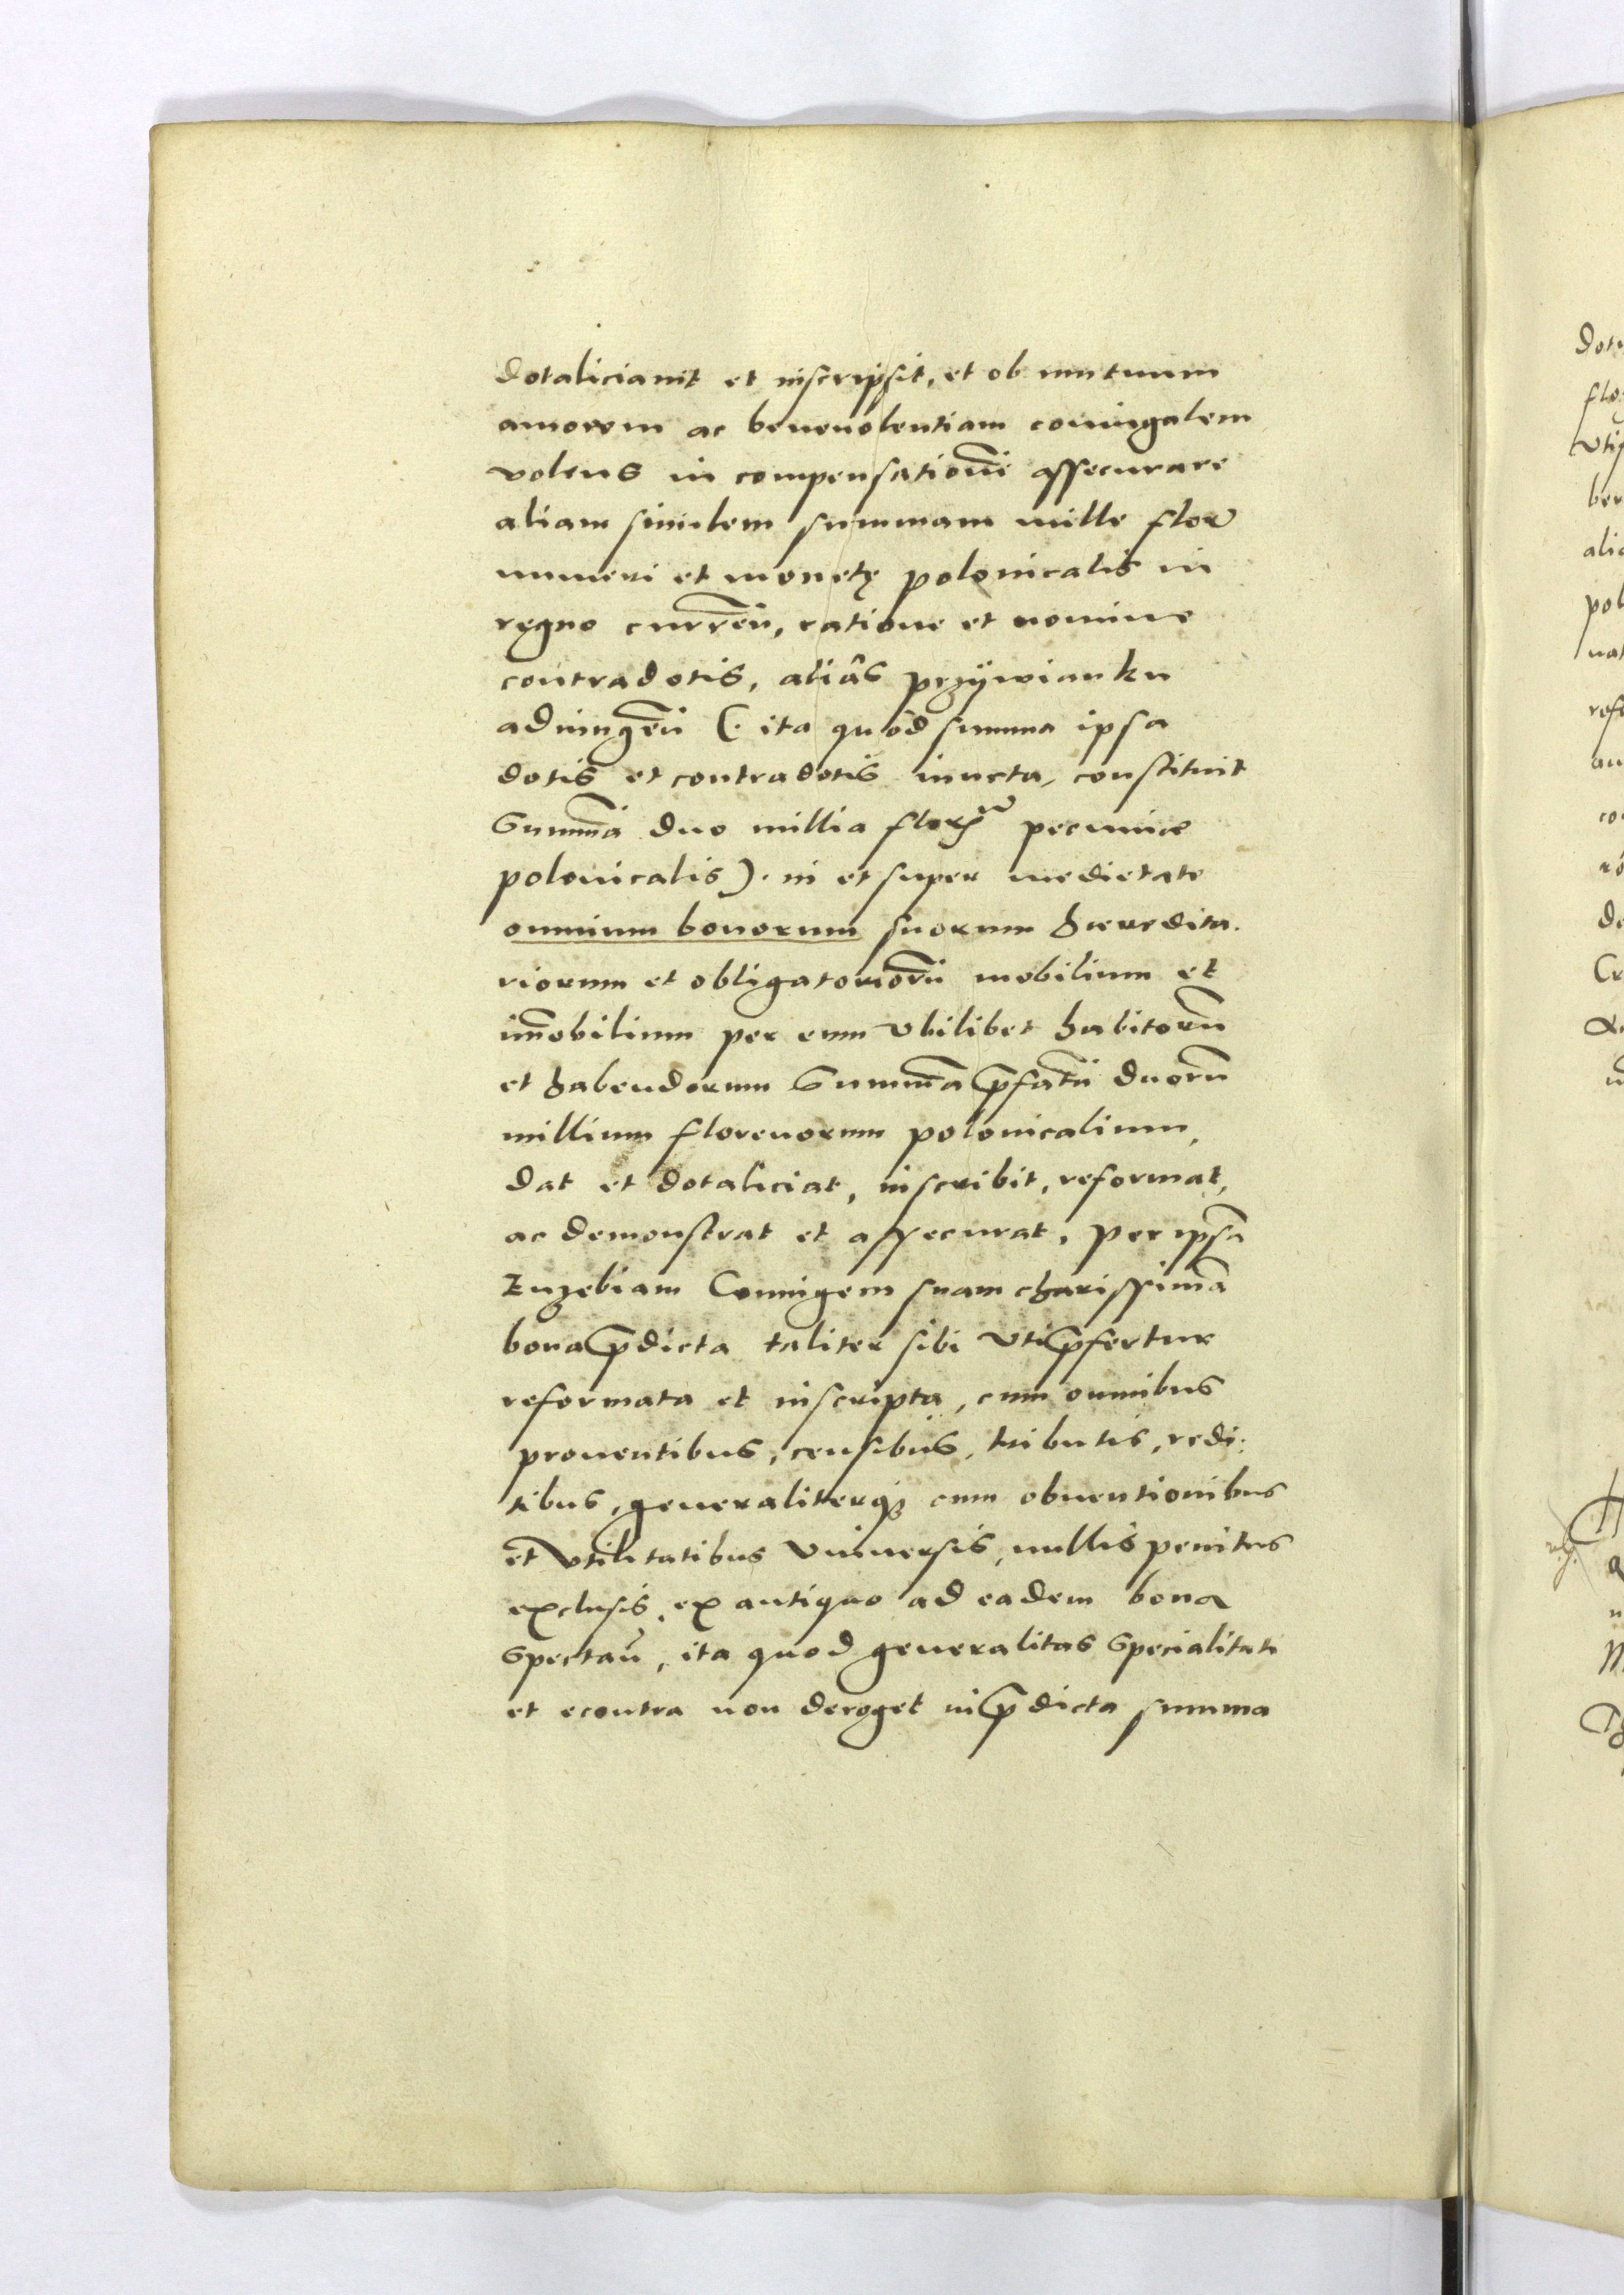 dotaliciauit et inscripsit, et ob mutuum
amorem ac beneuolentiam coniugalem
volens in compensationẽ assecurare
aliam similem summam mille flor̃
numeri et monetę polonicalis in
regno curreñ, ratione et nomine
contradotis, aliâs przÿwianku
adiungeñ (. ita quòd summa ipsa
dotis et contradotis iuncta, constituit
Summã duo millia florũ pecuniæ
polonicalis). in et super medietate
omnium bonorum suorum hæredita.
riorum et obligatoriorũ mobilium et
im̃obilium per eum vbilibet habitorũ
et habendorum Summã p̃fatã duorũ
millium florenorum polonicalium,
dat et dotaliciat, inscribit, reformat,
ac demonstrat et assecurat, per ipsã
Euzebiam Coniugem suam charissimã
bona p̃dicta taliter sibi vti p̃fertur
reformata et inscripta, cum omnibus
prouentibus, censibus, tributis, redi:
tibus, generaliterq́ȝ cum obuentionibus
et vtilitatibus vniuersis, nullis penitus
exclusis, ex antiquo ad eadem bona
spectañ, ita quod generalitas specialitati
et econtra non deroget in p̃dicta summa